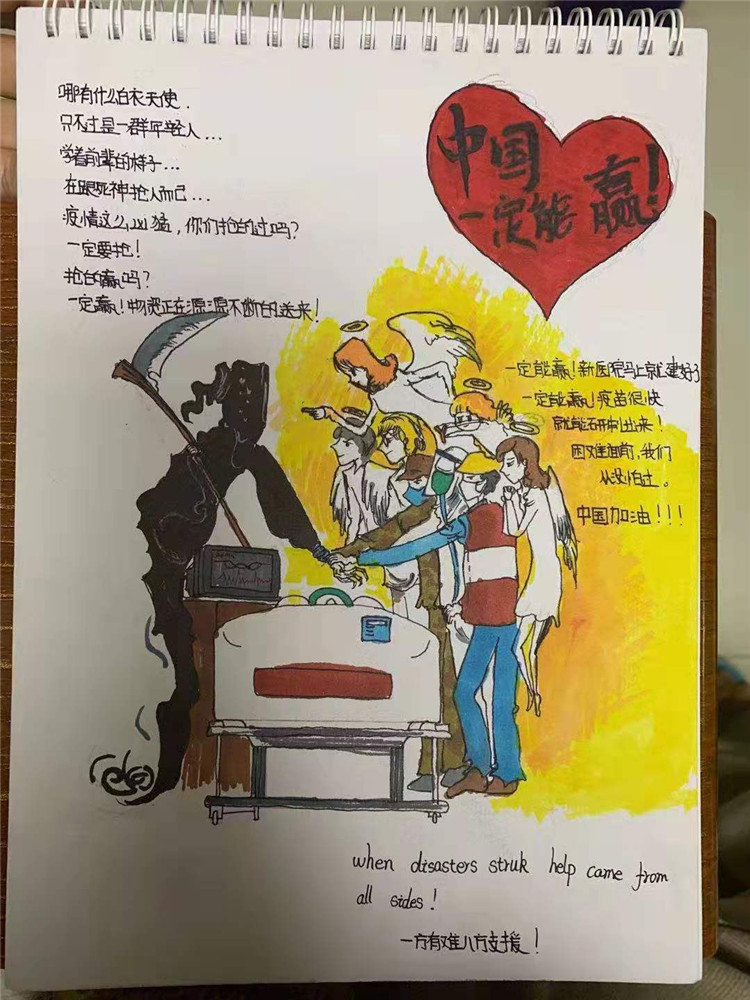 哪有什么白衣天使.
只不过是一群年轻人...
学着前辈的样子...
在跟死神抢人而已...
疫情这么凶猛,你们抢的过吗?
一定要抢!
抢的赢吗?
一定赢!物资正在源源不断的送来!
中国
一定能赢!
一定能赢!新医院马上就建好了
一定能赢!疫苗很快
就能研制出来!
困难面前,我们
从没怕过。
中国加油!!!
when disasters struk help came from
all sides!
一方有难八方支援!